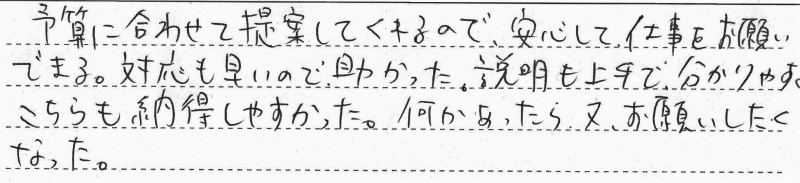 予算に合わせて提案してくれるので、安心して、仕事をお願い
できる。対応も早いので、助かった。説明も上手で、分かりやす
こちらも納得しやすかった。何かあったら、又、お願いしたく
なった。